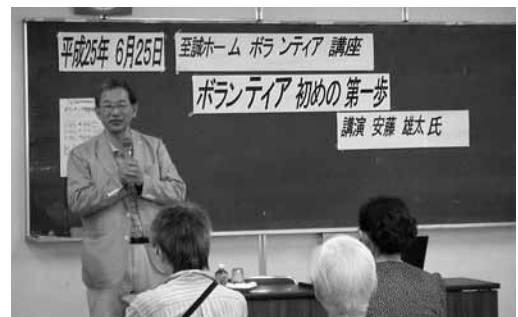 平成25年 6月25日
至誠ホーム ボランティア 講座
ボランティア 初めの 第一歩
講演 安藤 雄太 氏